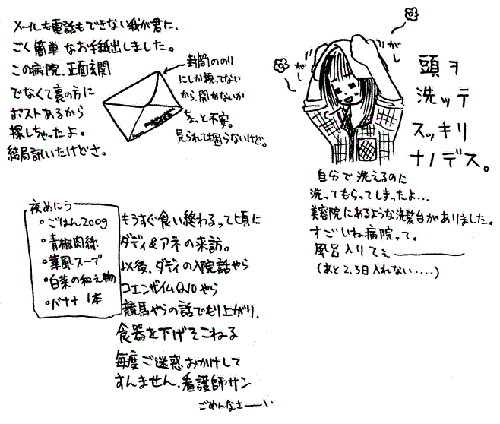 メールも電話もできない我が君に、
ごく簡単なお手紙出しました。
この病院、正面玄関
でなくて裏の方に
ポストあるから
探しちゃったよ。
結局訊いたけどさ。
封筒ののり
にしか頼ってない
から開かないか
ちょっと不安。
見られても困らないけど。
頭ヲ
洗ッテ
スッキリ
ナノデス。
がし
がし
自分で洗えるのに
洗ってもらってしまったよ…
美容院にあるような洗髪台がありました。
すごいね病院って。
風呂入りてぇ―
(あと2、3日入れない.....)
夜めにう
・ごはん200g
・青椒肉絲
・華風スープ
・白菜の和え物
・バナナ 1本
もうすぐ食い終わるって頃に
ダディ&アネの来訪。
以後、ダディの入院話やら
コエンザイムQ10やら
競馬やらの話でもり上がり、
食器を下げそこねる
毎度ご迷惑おかけして
すんません、看護師サン
ごめんなさーい